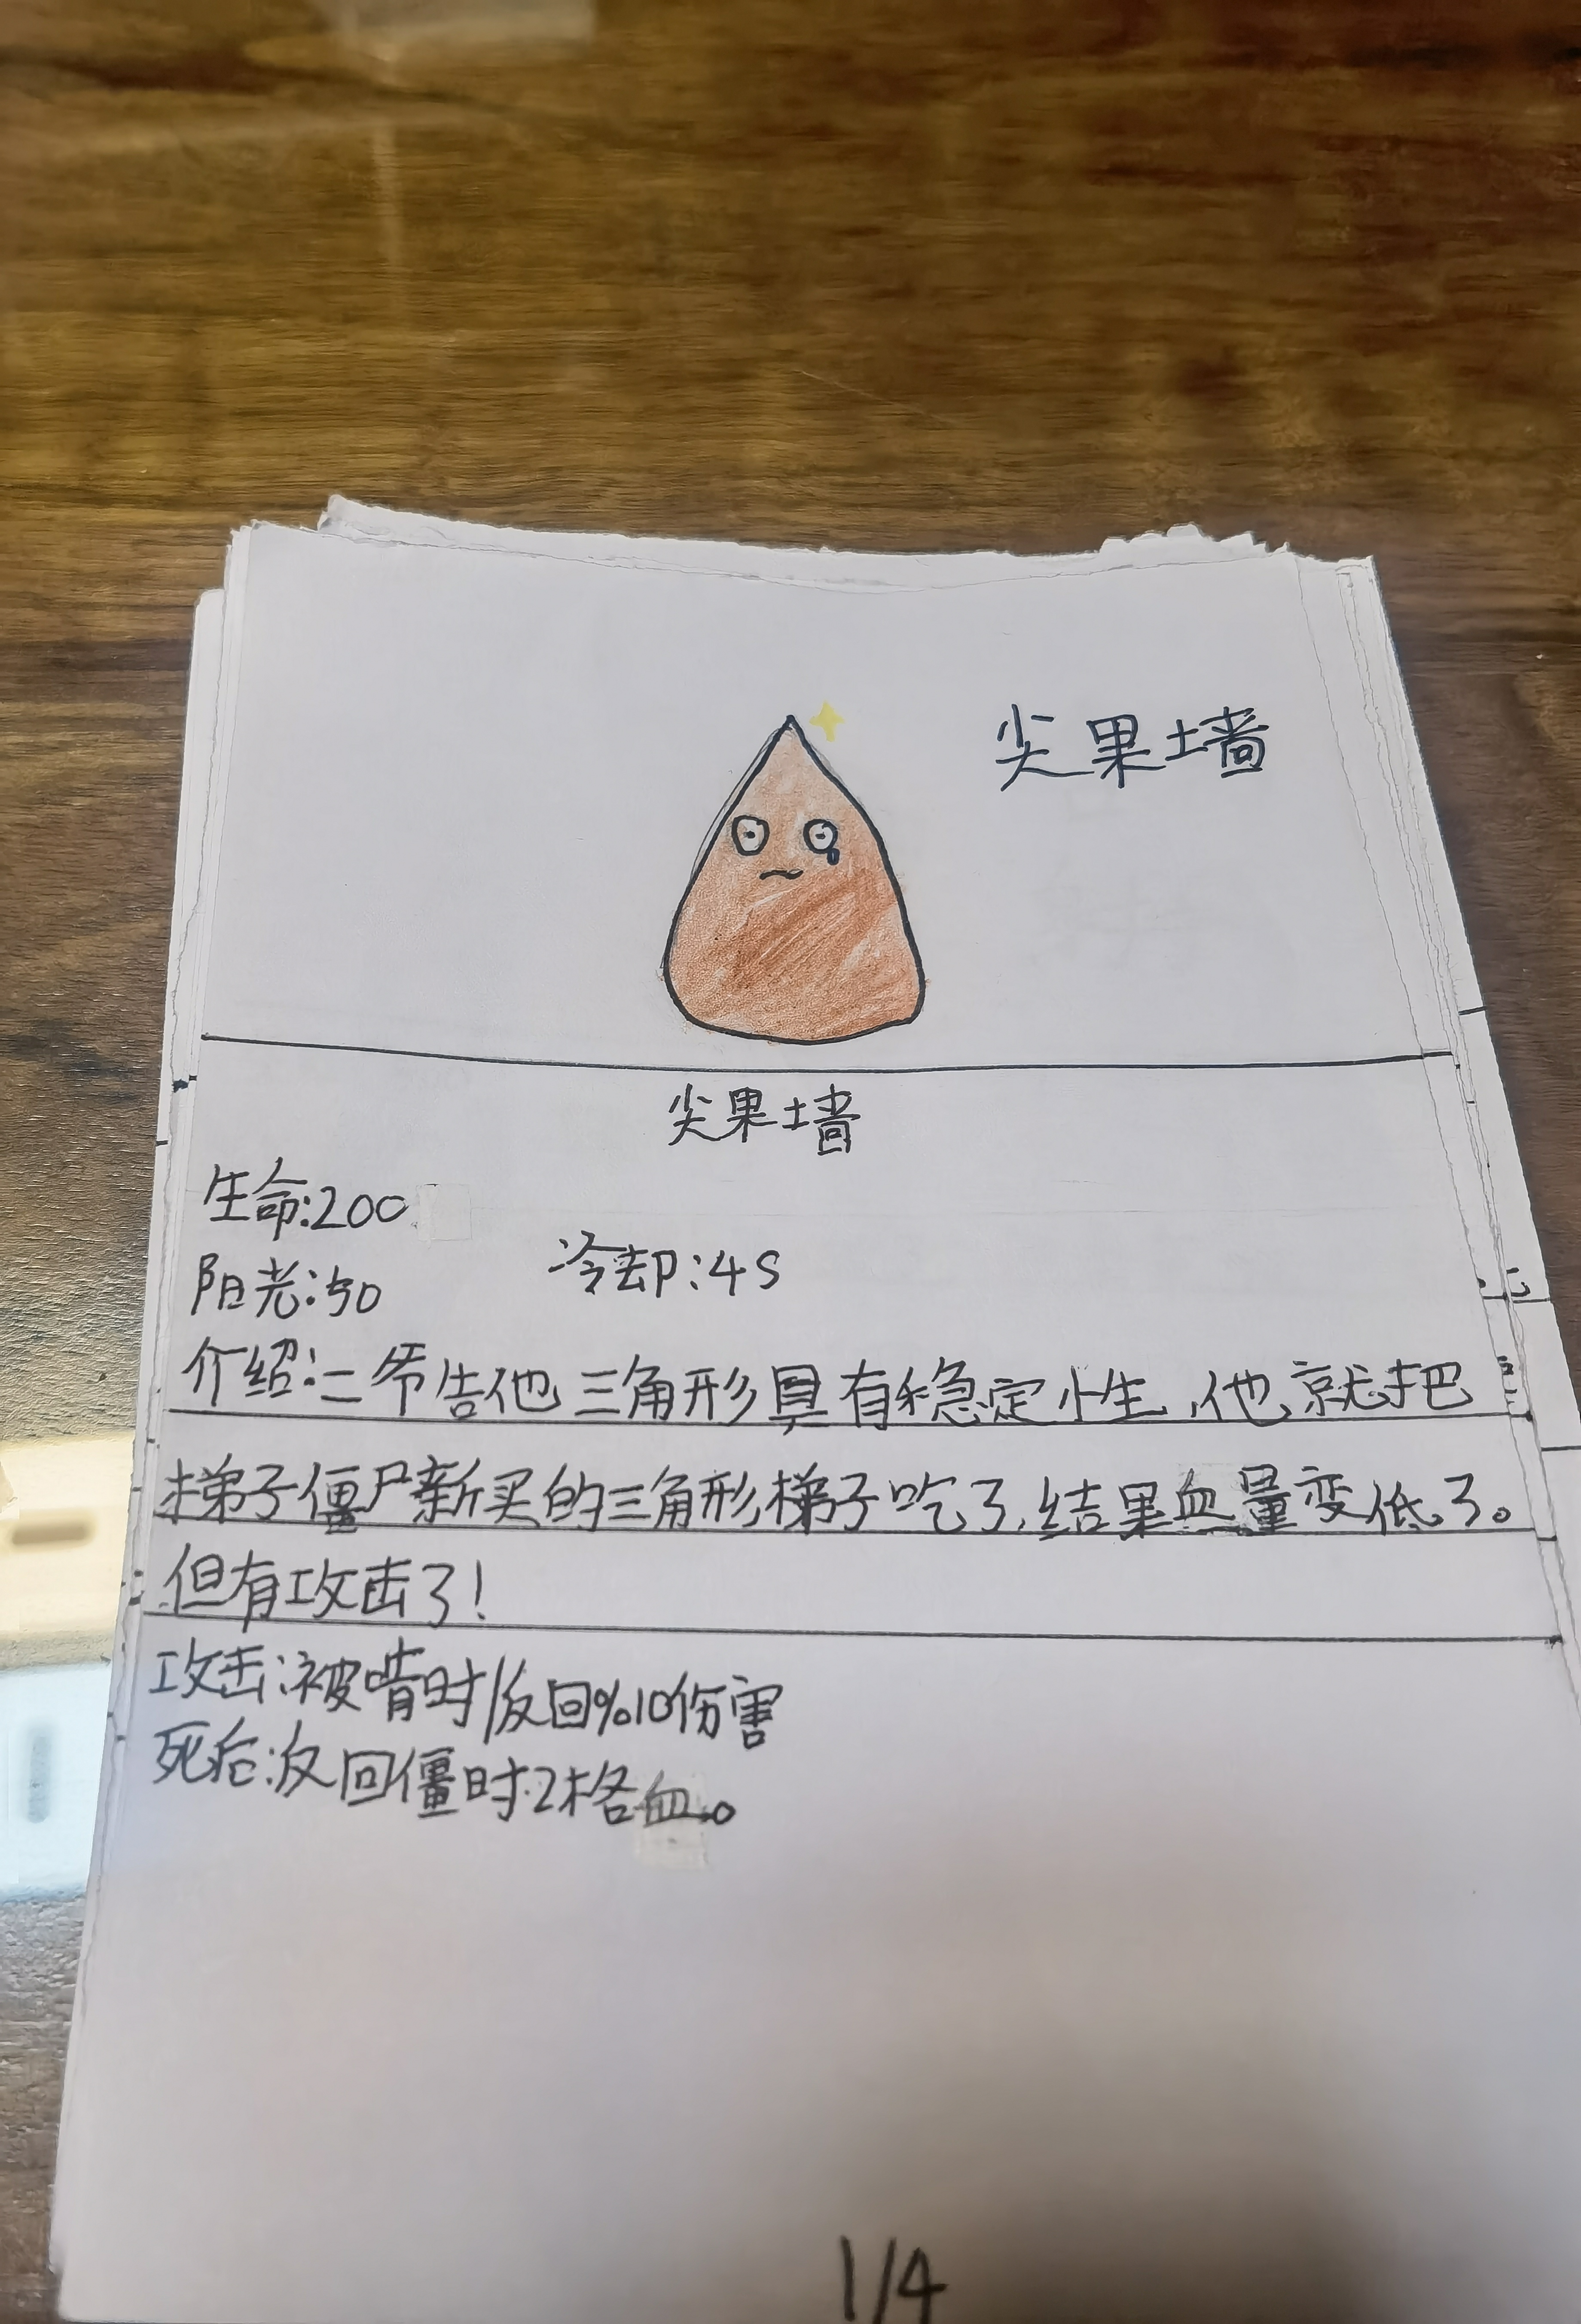 尖果墙
尖果墙
生命:200
阳光:50
冷却:4S
介绍:二爷告他三角形具有稳定性,他就把
梯子僵尸新买的三角形梯子吃了,结果血量变低了。
但有攻击了!
攻击:被啃时/反回%10伤害
死后:反回僵时2格血。
1/4